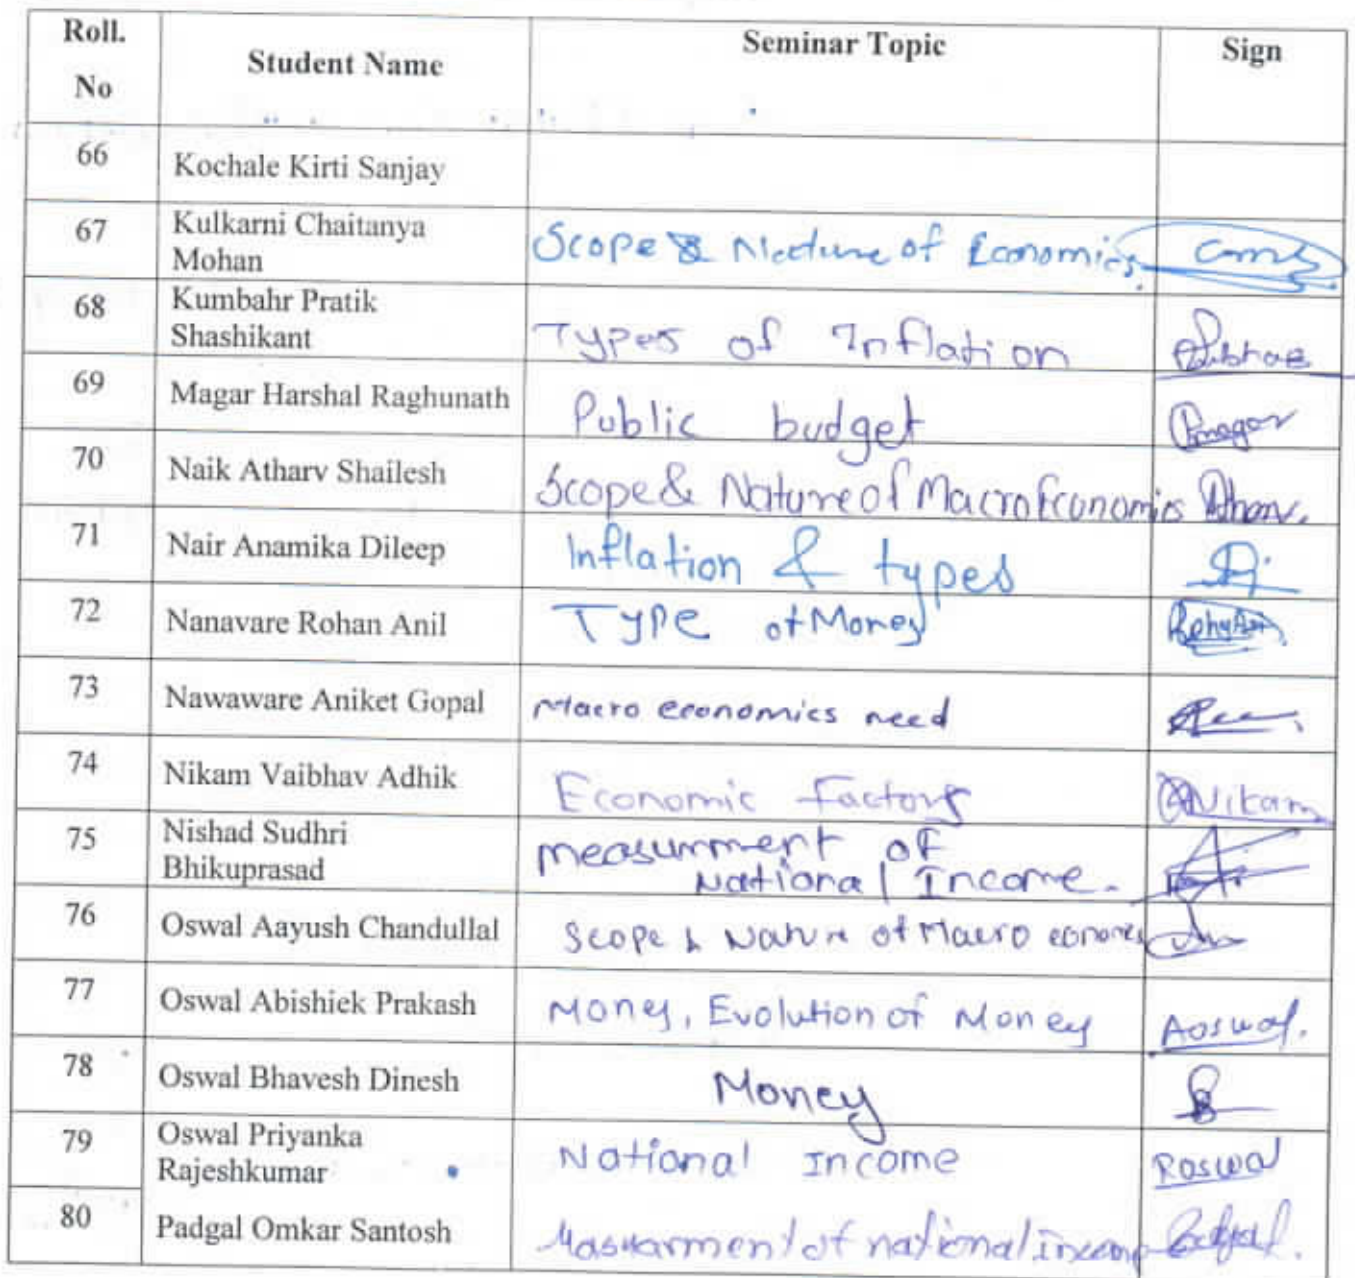 Roll. No Student Name Seminar Topic Sign
66 Kochale Kirti Sanjay
67 Kulkarni Chaitanya Mohan Scope & Nature of Economics.
68 Kumbahr Pratik Shashikant Types of Inflation
69 Magar Harshal Raghunath Public budget
70 Naik Atharv Shailesh Scope & Nature of Macro Economics
71 Nair Anamika Dileep Inflation & types
72 Nanavare Rohan Anil Type of Money
73 Nawaware Aniket Gopal Macro economics need
74 Nikam Vaibhav Adhik Economic factors Nikam
75 Nishad Sudhri Bhikuprasad measurment of National Income.
76 Oswal Aayush Chandullal Scope & Nature of Macro
77 Oswal Abishiek Prakash Money, Evolution of Money Aoswal.
78 Oswal Bhavesh Dinesh Money
79 Oswal Priyanka Rajeshkumar National Income Poswal
80 Padgal Omkar Santosh of national